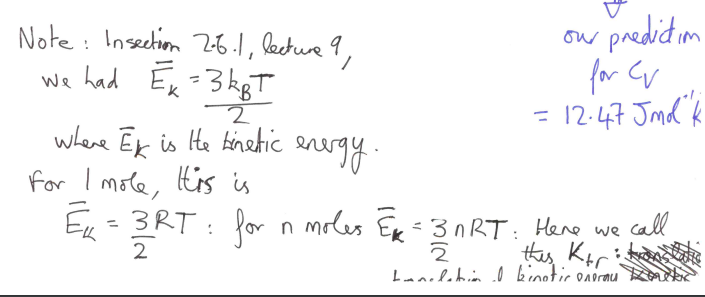 Note : In section 2.6.1, lecture 9,
we had Ēₖ = 3k_BT/2
where Ēₖ is the kinetic energy.
For 1 mole, this is
Ēₖ = 3/2 RT : for n moles Ēₖ = 3/2 nRT : Here we call
this K_tr :
translational kinetic energy
our prediction
for C_V
= 12.47 J mol⁻¹ K